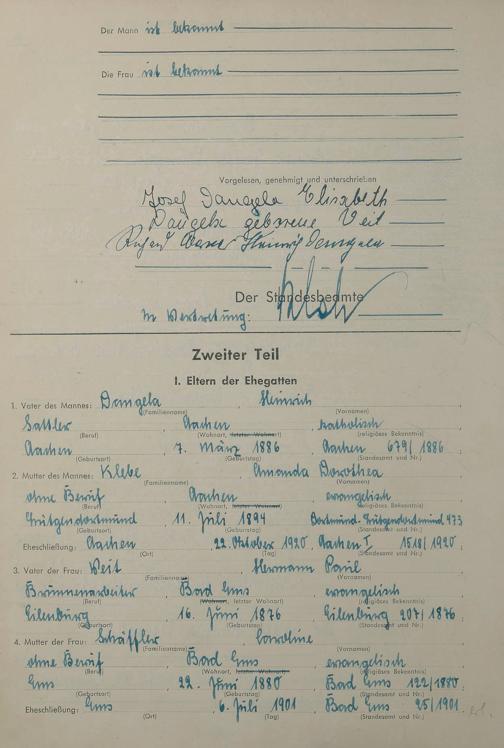 Der Mann ist bekannt
Die Frau ist bekannt
Vorgelesen, genehmigt und unterschrieben
Josef Dangela Elisabeth
Dangela geborene Veit
Heinrich Dangela
Der Standesbeamte
In Vertretung:
Zweiter Teil
I. Eltern der Ehegatten
1. Vater des Mannes: Dangela, Heinrich
(Familienname) (Vornamen)
Sattler, Aachen, katholisch
(Beruf) (Wohnort, letzter Wohnort) (religiöses Bekenntnis)
Aachen, 7. März 1886, Aachen 679/1886
(Geburtsort) (Geburtstag) (Standesamt und Nr.)
2. Mutter des Mannes: Klebe, Amanda Dorothea
(Familienname) (Vornamen)
ohne Beruf, Aachen, evangelisch
(Beruf) (Wohnort, letzter Wohnort) (religiöses Bekenntnis)
Lütgendortmund, 11. Juli 1894, Dortmund-Lütgendortmund 473
(Geburtsort) (Geburtstag) (Standesamt und Nr.)
Eheschließung: Aachen, 22. Oktober 1920, Aachen I 1518/1920.
(Ort) (Tag) (Standesamt und Nr.)
3. Vater der Frau: Veit, Hermann Paul
(Familienname) (Vornamen)
Brunnenarbeiter, Bad Ems, evangelisch
(Beruf) (Wohnort, letzter Wohnort) (religiöses Bekenntnis)
Eilenburg, 16. Juni 1876, Eilenburg 207/1876
(Geburtsort) (Geburtstag) (Standesamt und Nr.)
4. Mutter der Frau: Schäffler, Caroline
(Familienname) (Vornamen)
ohne Beruf, Bad Ems, evangelisch
(Beruf) (Wohnort, letzter Wohnort) (religiöses Bekenntnis)
Ems, 22. Juni 1880, Bad Ems 122/1880.
(Geburtsort) (Geburtstag) (Standesamt und Nr.)
Eheschließung: Ems, 6. Juli 1901, Bad Ems 25/1901.
(Ort) (Tag) (Standesamt und Nr.)